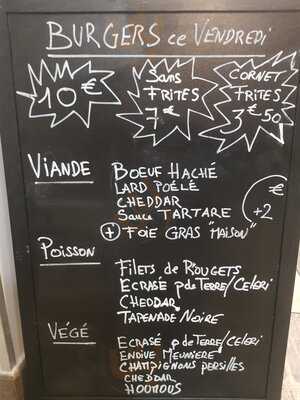 BURGERS ce VENDREDI
10 €
Sans
FRITES
7 €
CORNET
FRITES
3€50
VIANDE
BOEUF HACHÉ
LARD POÊLÉ
CHEDDAR
Sauce TARTARE
+ "FOIE GRAS "MAISON"
€
+2
POISSON
FILETS de ROUGETS
ECRASÉ p de TERRE/CELERI
CHEDDAR
TAPENADE NOIRE
VÉGÉ
ECRASÉ p de TERRE/CELERI
ENDIVE MEUNIERE
CHAMPIGNONS PERSILLES
CHEDDAR
HOUMOUS